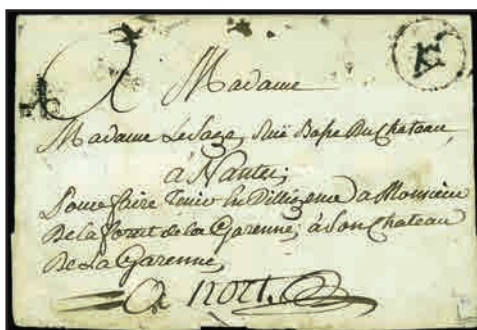 A
Madame
Madame Le Sage, Ruë Basse Du Chateau,
à Nantes;
Pour faire Tenir En Dilligence à Monsieur
De la foret de la Garenne; à Son Chateau
De La Garenne,
A NORT.